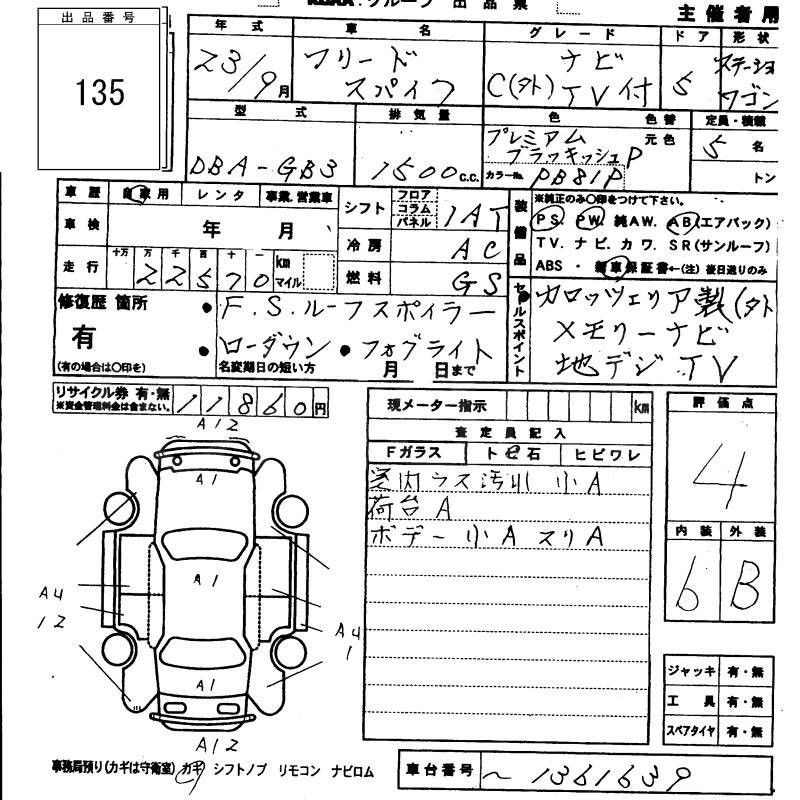 グループ 出品票
主催者用
出品番号
135
年式 車名 グレード ドア 形状
23/9月 フリード スパイク C(外) ナビ TV付 5 ステーション ワゴン
型式 排気量 色 色替 定員・積載
DBA-GB3 1500c.c. プレミアム ブラッキッシュP 元色 5名
カラーNo. PB81P トン
車歴 自家用 レンタ 事業.営業車
シフト フロア コラム パネル 1AT
車検 年 月
冷房 AC
走行 十万 万 千 百 十 一 22570 km マイル
燃料 GS
装備品 ※純正のみ〇印をつけて下さい。
PS. PW. 純AW. AB(エアバック)
TV. ナビ. カワ. SR(サンルーフ)
ABS ・ 新車保証書←(注) 後日送りのみ
修復歴 箇所
有
(有の場合は〇印を)
●F.S.ルーフスポイラー
●ローダウン ●フォグライト
名変期日の短い方 月 日まで
セールスポイント
カロッツェリア製(外
メモリーナビ
地デジTV
リサイクル券 有・無
※資金管理料金は含まない。
11860円
現メーター指示 km
査定員記入
Fガラス トビ石 ヒビワレ
室内ウス汚れ 小A
荷台A
ボデー小A スリA
評価点
4
内装 外装
6 B
A12
A1
A1
A4
12
A4
1
A1
A12
ジャッキ 有・無
工具 有・無
スペアタイヤ 有・無
事務局預り(カギは守衛室) カギ シフトノブ リモコン ナビロム
車台番号 〜1361639